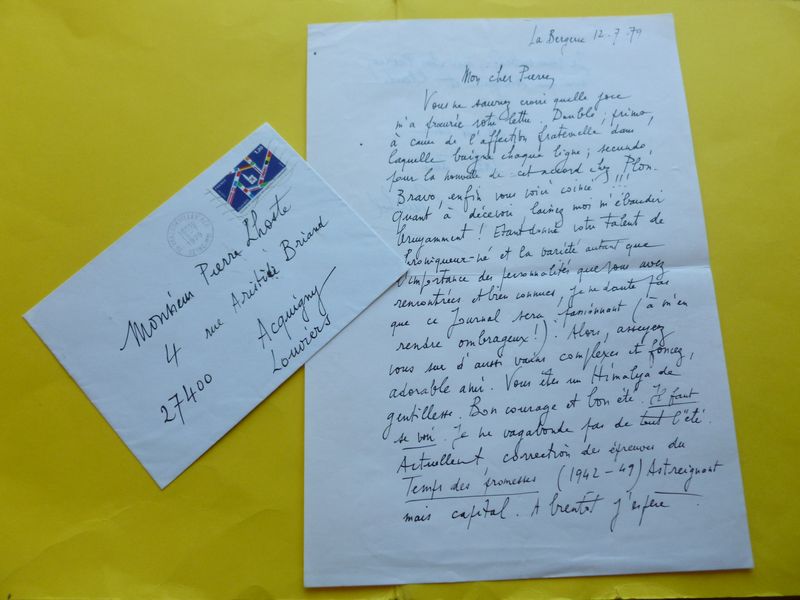 La Bergerie 12.7.79
Mon cher Pierre,
Vous ne sauriez croire quelle joie
m'a procurée votre lettre. Double; primo,
à cause de l'affection fraternelle dans
laquelle baigne chaque ligne; secundo,
pour la nouvelle de cet accord chez Plon.
Bravo, enfin vous voici coincé !!!
Quant à décevoir, laissez moi m'ébaudir
bruyamment ! Etant donné votre talent de
chroniqueur-né et la variété autant que
l'importance des personnalités que vous avez
rencontrées et bien connues, je ne doute pas
que ce Journal sera passionnant (à m'en
rendre ombrageux !). Alors, asseyez
vous sur d'aussi vains complexes et foncez,
adorable ami. Vous êtes un Himalya de
gentillesse. Bon courage et bon été. Il faut
se voir. Je ne vagabonde pas de tout l'été.
Actuellement, correction des épreuves du
Temps des promesses (1942-49) Astreignant
mais capital. A bientôt j'espère
Monsieur Pierre Lhoste
4 rue Aristide Briand
Acquigny
27400 Louviers
1979